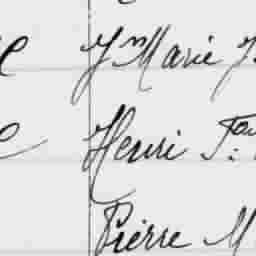 Jn Marie J
Henri Fou
Pierre M